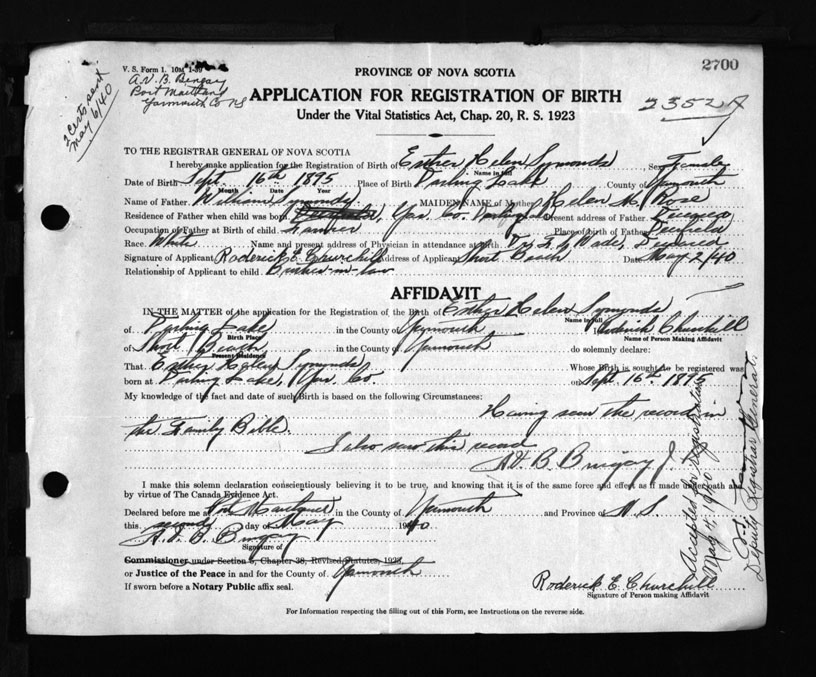 V. S. Form 1. 10M
2700
A. V. B. Bingay
Port Maitland
Yarmouth Co NS
2 certs sent
May 6/40
PROVINCE OF NOVA SCOTIA
APPLICATION FOR REGISTRATION OF BIRTH
2352
Under the Vital Statistics Act, Chap. 20, R. S. 1923
TO THE REGISTRAR GENERAL OF NOVA SCOTIA
I hereby make application for the Registration of Birth of Esther Helen Symonds, Sex Female
Name in full
Date of Birth Sept. 16th 1895 Place of Birth Darling Lake County of Yarmouth
Month Date Year
Name of Father William Symonds MAIDEN NAME of Mother Helen M. Rose
Residence of Father when child was born Yar. Co. Darling Lake Present address of Father Deceased
Occupation of Father at Birth of child Farmer Place of birth of Father Deerfield
Race. White Name and present address of Physician in attendance at birth. Dr. Wade, Deceased
Signature of Applicant Roderick E. Churchill Address of Applicant Short Beach Date May 2/40
Relationship of Applicant to child. Brother-in-law
AFFIDAVIT
IN THE MATTER of the application for the Registration of the Birth of Esther Helen Symonds
Name in full
of Darling Lake in the County of Yarmouth I Roderick Churchill
Birth Place
Name of Person Making Affidavit
of Short Beach in the County of Yarmouth do solemnly declare:
Present Residence
That Esther Helen Symonds Whose Birth is sought to be registered was
born at Darling Lake, Yar. Co. on Sept. 16th 1895
My knowledge of the fact and date of such Birth is based on the following Circumstances:
Having seen the record in
the Family Bible.
I also saw this record
A. V. B. Bingay J.
I make this solemn declaration conscientiously believing it to be true, and knowing that it is of the same force and effect as if made under oath and
by virtue of The Canada Evidence Act.
Declared before me at Port Maitland in the County of Yarmouth and Province of N. S.
this second day of May 1940
A. V. B. Bingay
Signature of
Commissioner under Section 8, Chapter 38, Revised Statutes, 1923,
or Justice of the Peace in and for the County of Yarmouth
If sworn before a Notary Public affix seal.
Roderick E. Churchill
Signature of Person making Affidavit
For Information respecting the filling out of this Form, see Instructions on the reverse side.
Accepted for registration
May 4. 1940
Deputy Registrar General.